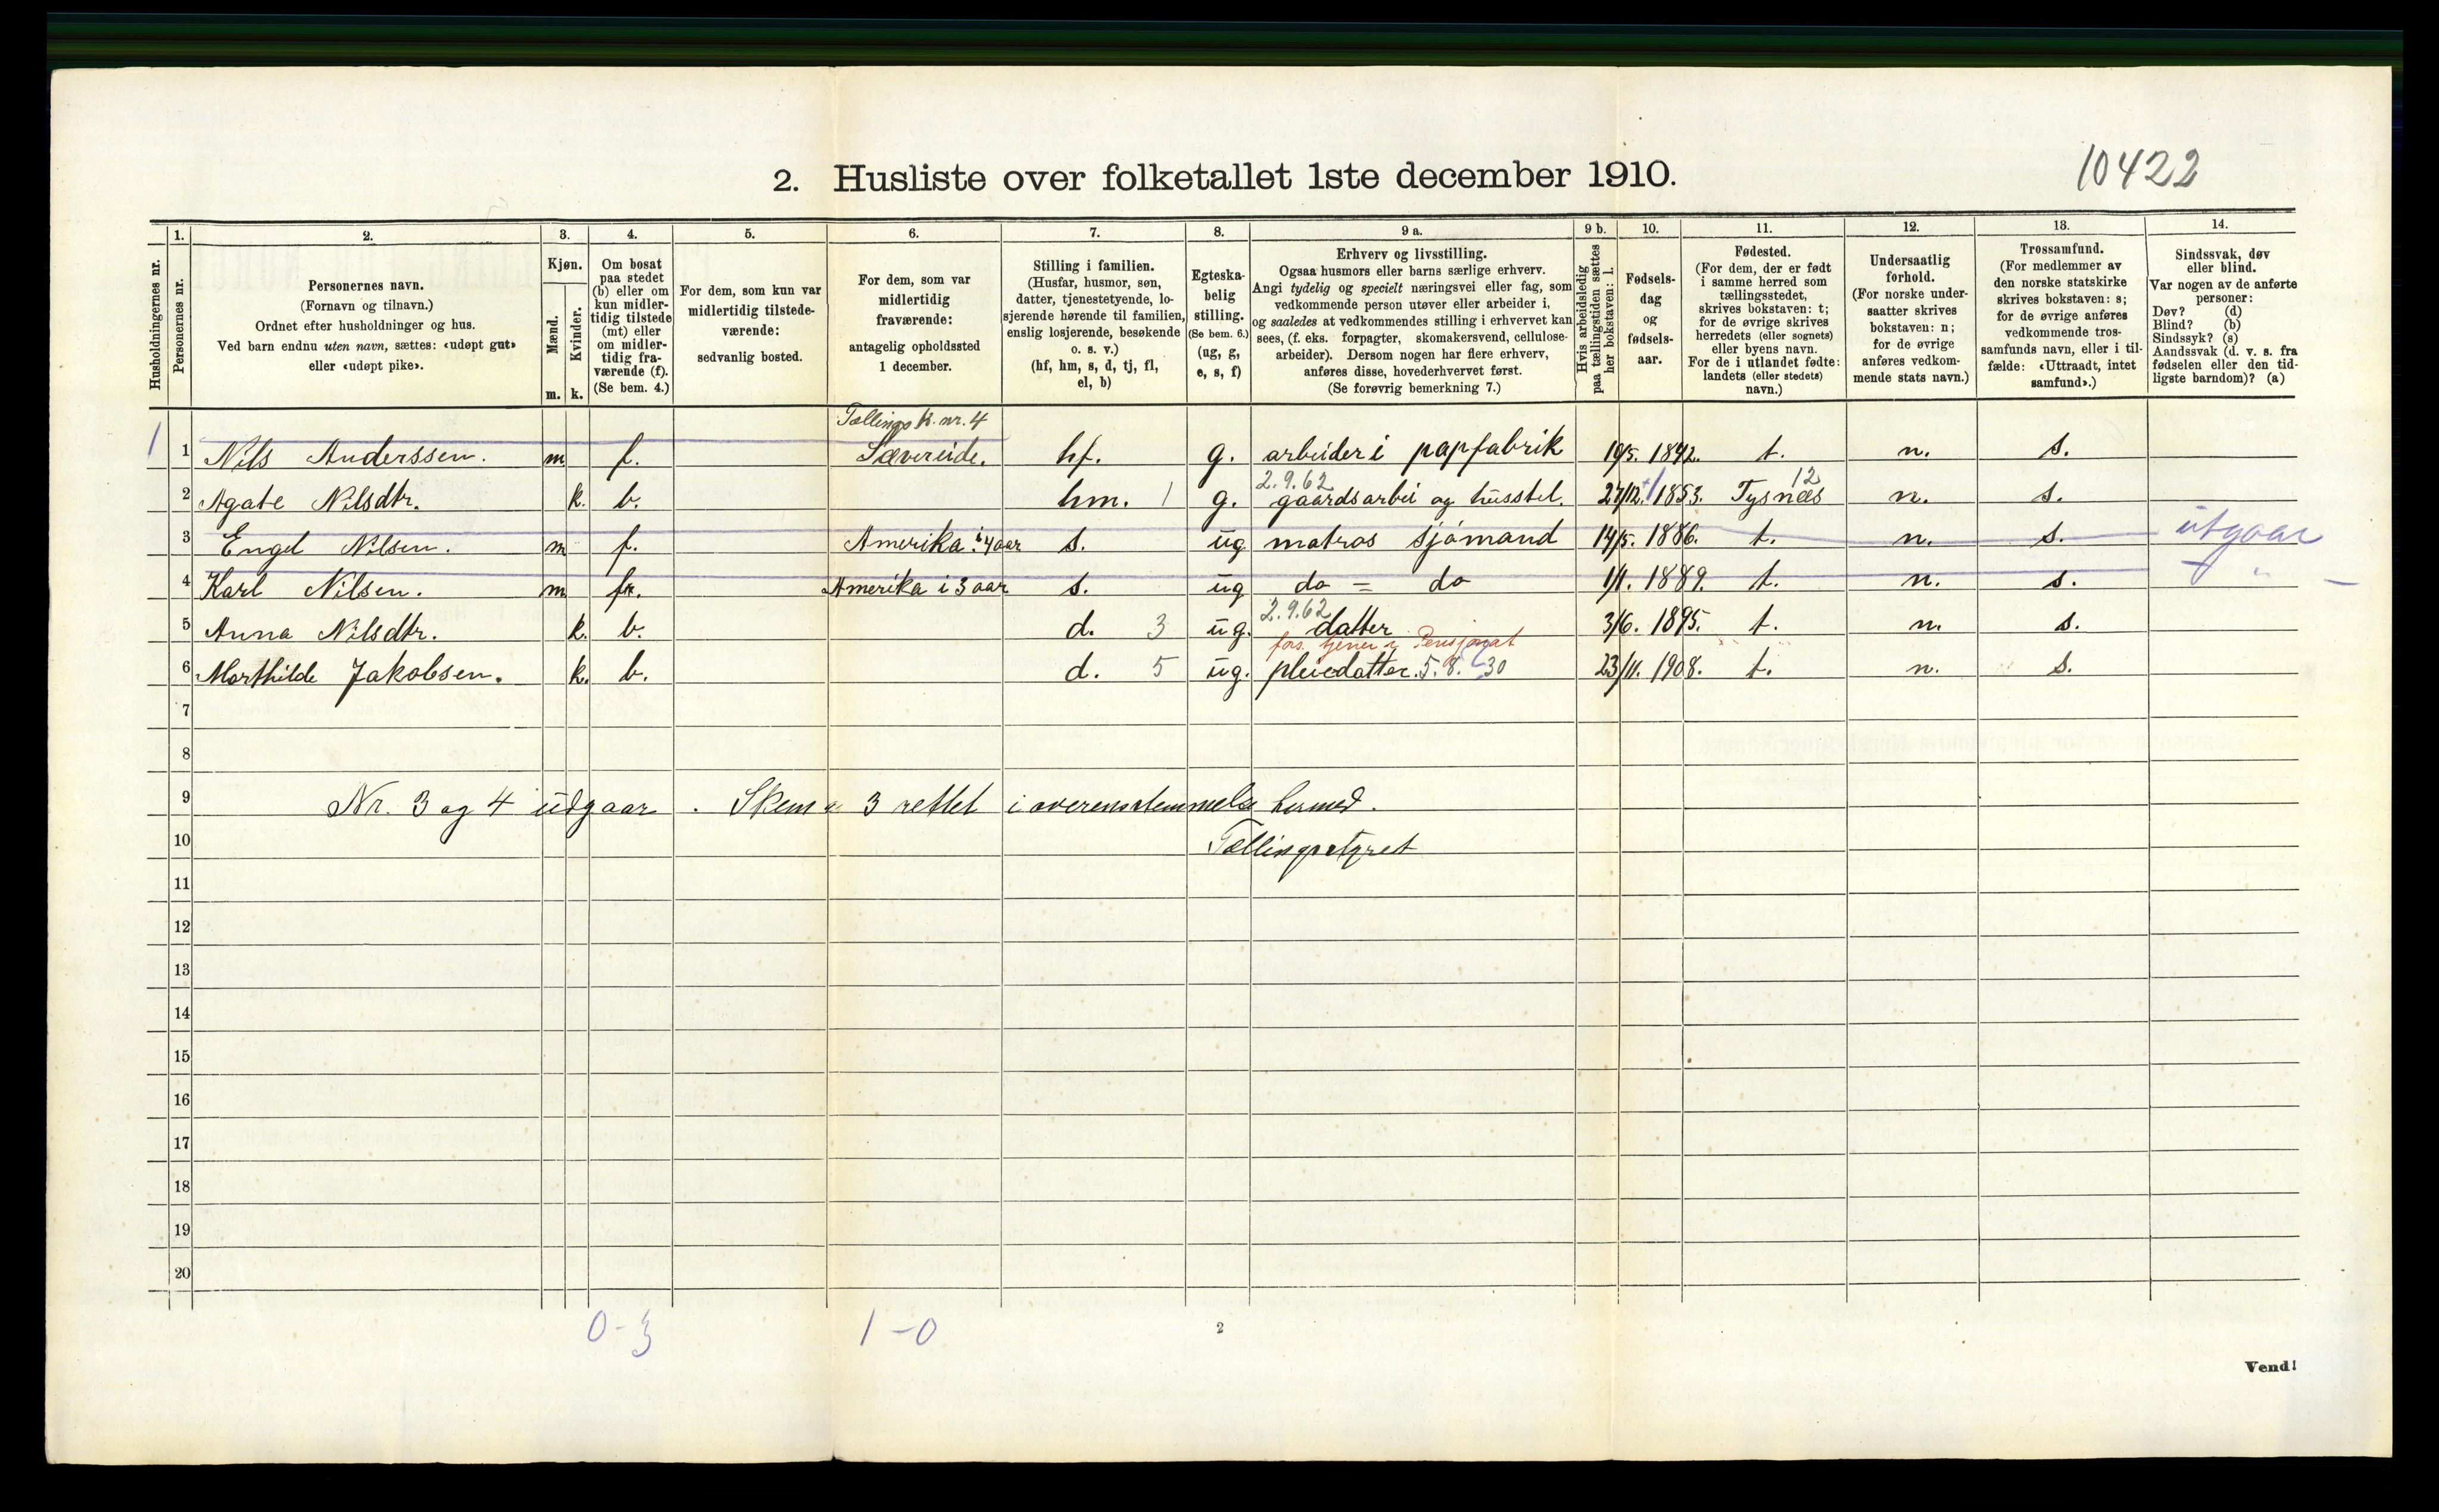 10422
2. Husliste over folketallet 1ste december 1910.
Husholdningernes nr.
1. Personernes nr.
2. Personernes navn. (Fornavn og tilnavn.) Ordnet efter husholdninger og hus. Ved barn endnu uten navn, sættes: «udøpt gut» eller «udøpt pike».
3. Kjøn. Mænd. m. Kvinder. k.
4. Om bosat paa stedet (b) eller om kun midlertidig tilstede (mt) eller om midlertidig fraværende (f). (Se bem. 4.)
5. For dem, som kun var midlertidig tilstedeværende: sedvanlig bosted.
6. For dem, som var midlertidig fraværende: antagelig opholdssted 1 december.
7. Stilling i familien. (Husfar, husmor, søn, datter, tjenestetyende, losjerende hørende til familien, enslig losjerende, besøkende o. s. v.) (hf, hm, s, d, tj, fl, el, b)
8. Egteskabelig stilling. (Se bem. 6.) (ug, g, e, s, f)
9 a. Erhverv og livsstilling. Ogsaa husmors eller barns særlige erhverv. Angi tydelig og specielt næringsvei eller fag, som vedkommende person utøver eller arbeider i, og saaledes at vedkommendes stilling i erhvervet kan sees, (f. eks. forpagter, skomakersvend, cellulose-arbeider). Dersom nogen har flere erhverv, anføres disse, hovederhvervet først. (Se forøvrig bemerkning 7.)
9 b. Hvis arbeidsledig paa tællingstiden sættes her bokstaven: l.
10. Fødselsdag og fødselsaar.
11. Fødested. (For dem, der er født i samme herred som tællingsstedet, skrives bokstaven: t; for de øvrige skrives herredets (eller sognets) eller byens navn. For de i utlandet fødte: landets (eller stedets) navn.)
12. Undersaatlig forhold. (For norske undersaatter skrives bokstaven: n; for de øvrige anføres vedkommende stats navn.)
13. Trossamfund. (For medlemmer av den norske statskirke skrives bokstaven: s; for de øvrige anføres vedkommende trossamfunds navn, eller i tilfælde: «Uttraadt, intet samfund».)
14. Sindssvak, døv eller blind. Var nogen av de anførte personer: Døv? (d) Blind? (b) Sindssyk? (s) Aandssvak (d. v. s. fra fødselen eller den tidligste barndom)? (a)
Tællings k. nr. 4
1 1 Nils Anderssen. m f. Sævereide. hf. g. arbeider i papfabrik 19/5. 1842. t. n. s.
2.9.62 12
2 Agate Nilsdtr. k. b. hm. 1 g. gaardsarbei og husstel. 27/12. 1853. Tysnæs n. s.
3 Engel Nilsen. m f. Amerika i 4 aar s. ug matros sjømand 14/5. 1886. t. n. s. utgaar
4 Karl Nilsen. m f. Amerika i 3 aar s. ug do = do 1/1. 1889. t. n. s. - " -
2.9.62
5 Anna Nilsdtr. k. b. d. 3 ug. datter 3/6. 1895. t. n. s.
fors. tjener i Pensjonat
6 Marthilde Jakobsen. k. b. d. 5 ug. pleiedatter. 5.8. 30 23/11. 1908. t. n. s.
7
8
9 Nr. 3 og 4 udgaar. Skema 3 rettet i overensstemmelse hermed.
10 Tællingsstyret
11
12
13
14
15
16
17
18
19
20
0-3 1-0
2
Vend!